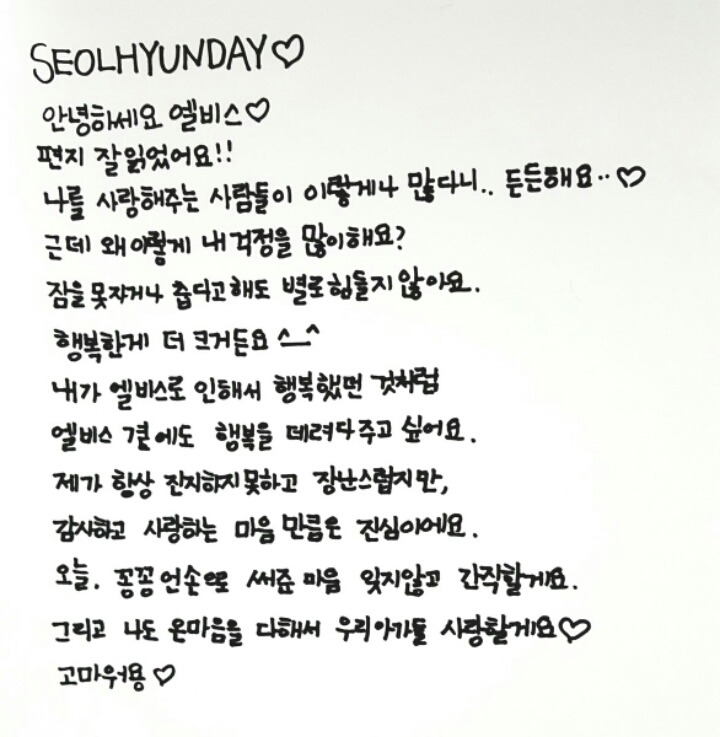 SEOLHYUNDAY♡
안녕하세요 엘비스♡
편지 잘 읽었어요!!
나를 사랑해주는 사람들이 이렇게나 많다니.. 든든해요..♡
근데 왜 이렇게 내 걱정을 많이해요?
잠을 못자거나 춥다고해도 별로 힘들지 않아요.
행복한게 더 크거든요 ^_^
내가 엘비스로 인해서 행복했던 것처럼
엘비스 곁에도 행복을 데려다주고 싶어요.
제가 항상 진지하지못하고 장난스럽지만,
감사하고 사랑하는 마음 만큼은 진심이에요.
오늘. 꽁꽁 언손으로 써준 마음 잊지않고 간직할게요.
그리고 나도 온마음을 다해서 우리아가들 사랑할게요♡
고마워용♡